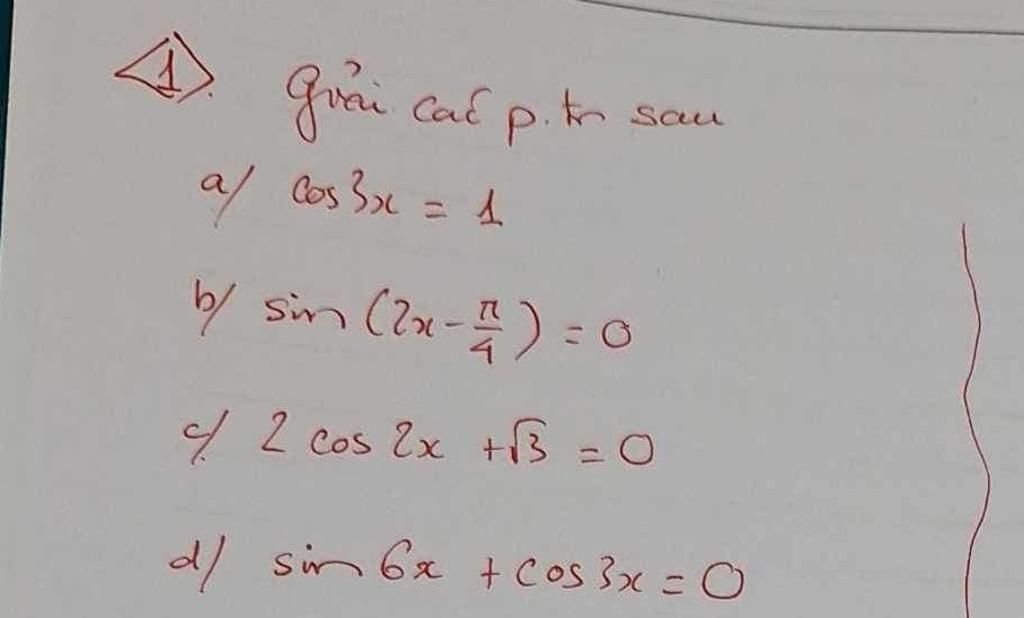 1. Giải các p.tr sau
a/ cos3x = 1
b/ sin (2x - π/4) = 0
c/ 2 cos 2x + √3 = 0
d/ sin 6x + cos 3x = 0